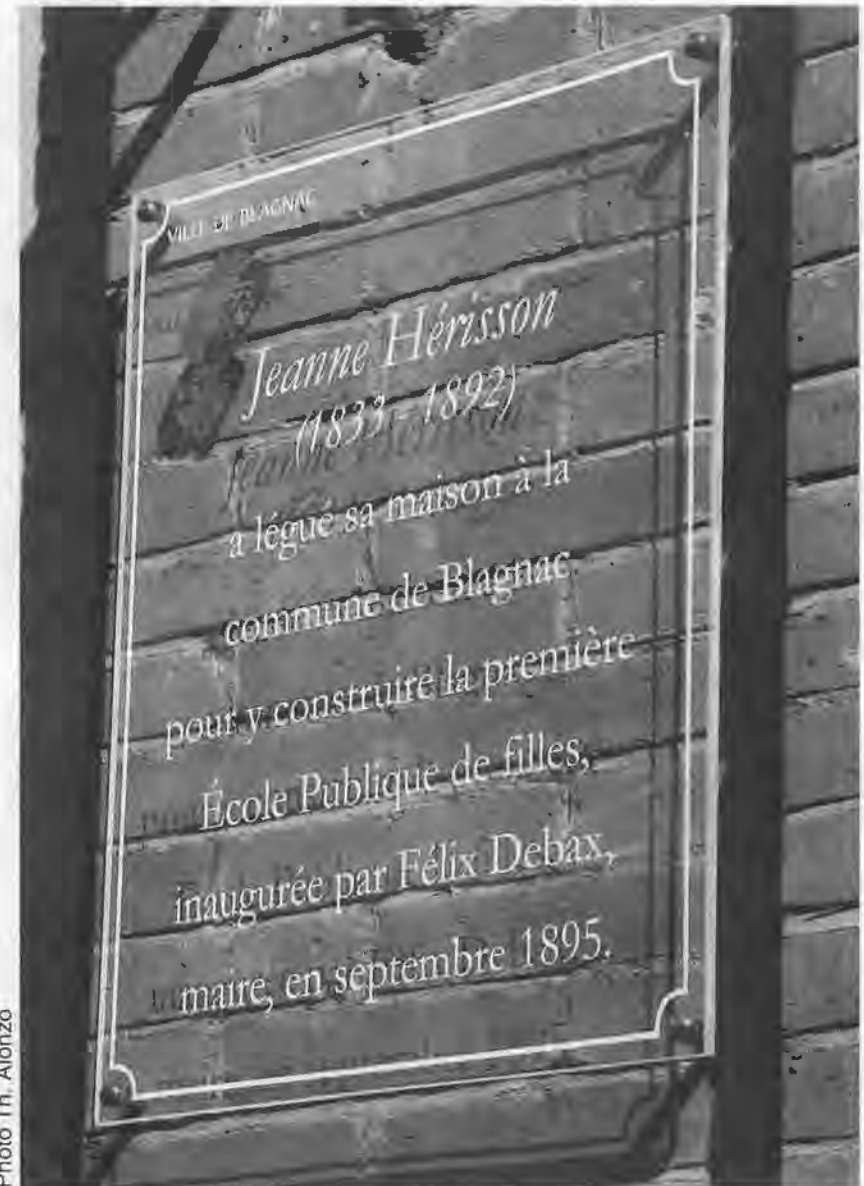 VILLE DE BLAGNAC
Jeanne Hérisson
(1833 - 1892)
a légué sa maison à la
commune de Blagnac
pour y construire la première
École Publique de filles,
inaugurée par Félix Debax,
maire, en septembre 1895.
Photo Th. Alonzo